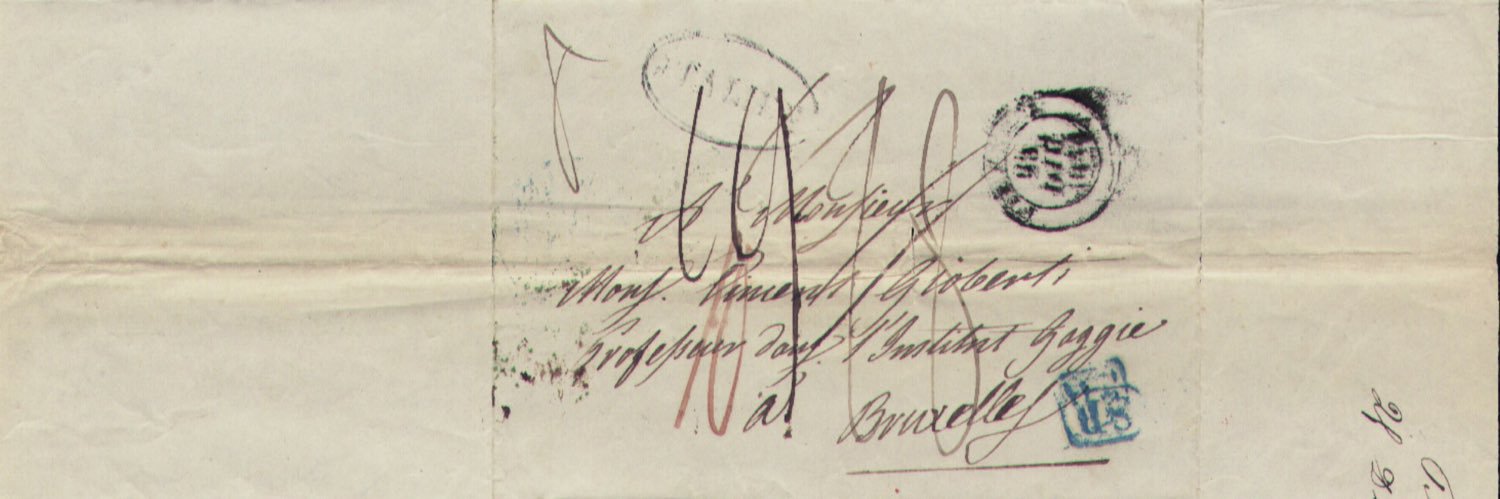 ITALIE
A Monsieur
Mons. Vincent Gioberti
Professeur dans l'Institut Gaggie
à
Bruxelles